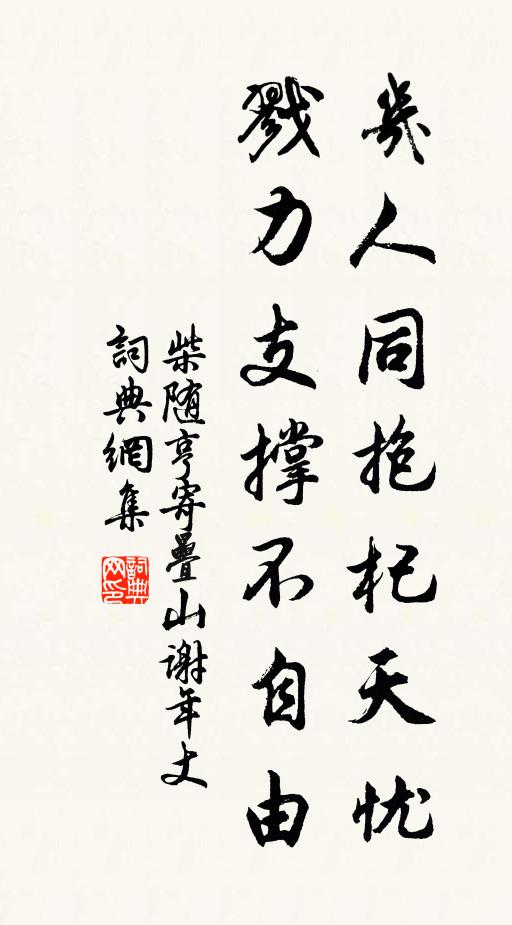 幾人同抱杞天忧
戮力支撐不自由
柴随亨寄疊山谢年丈
詞典網集
詞典网印